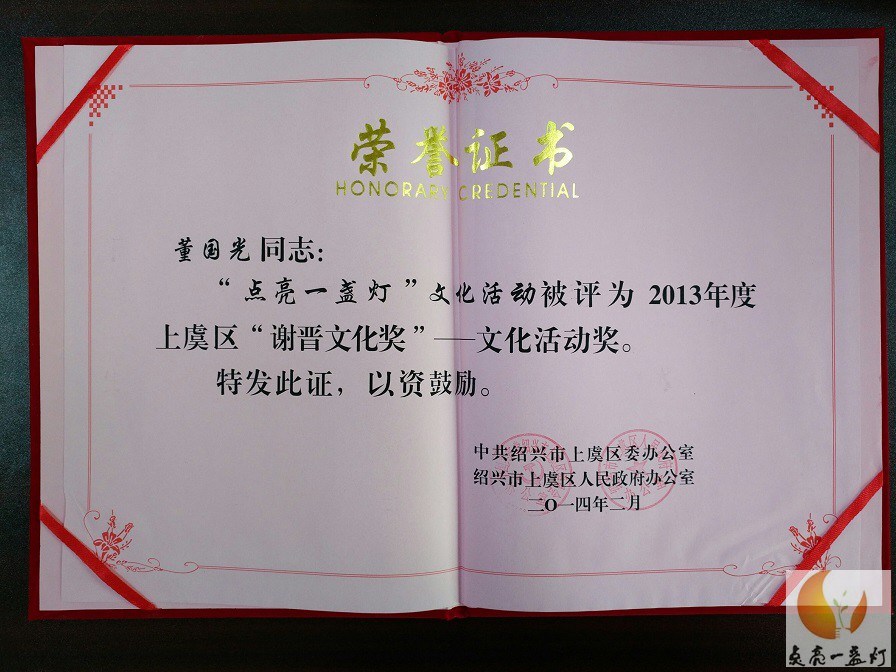 荣誉证书
HONORARY CREDENTIAL
董国光同志：
“点亮一盏灯”文化活动被评为 2013年度
上虞区“谢晋文化奖”——文化活动奖。
特发此证，以资鼓励。
中共绍兴市上虞区委办公室
绍兴市上虞区人民政府办公室
二〇一四年二月
点亮一盏灯